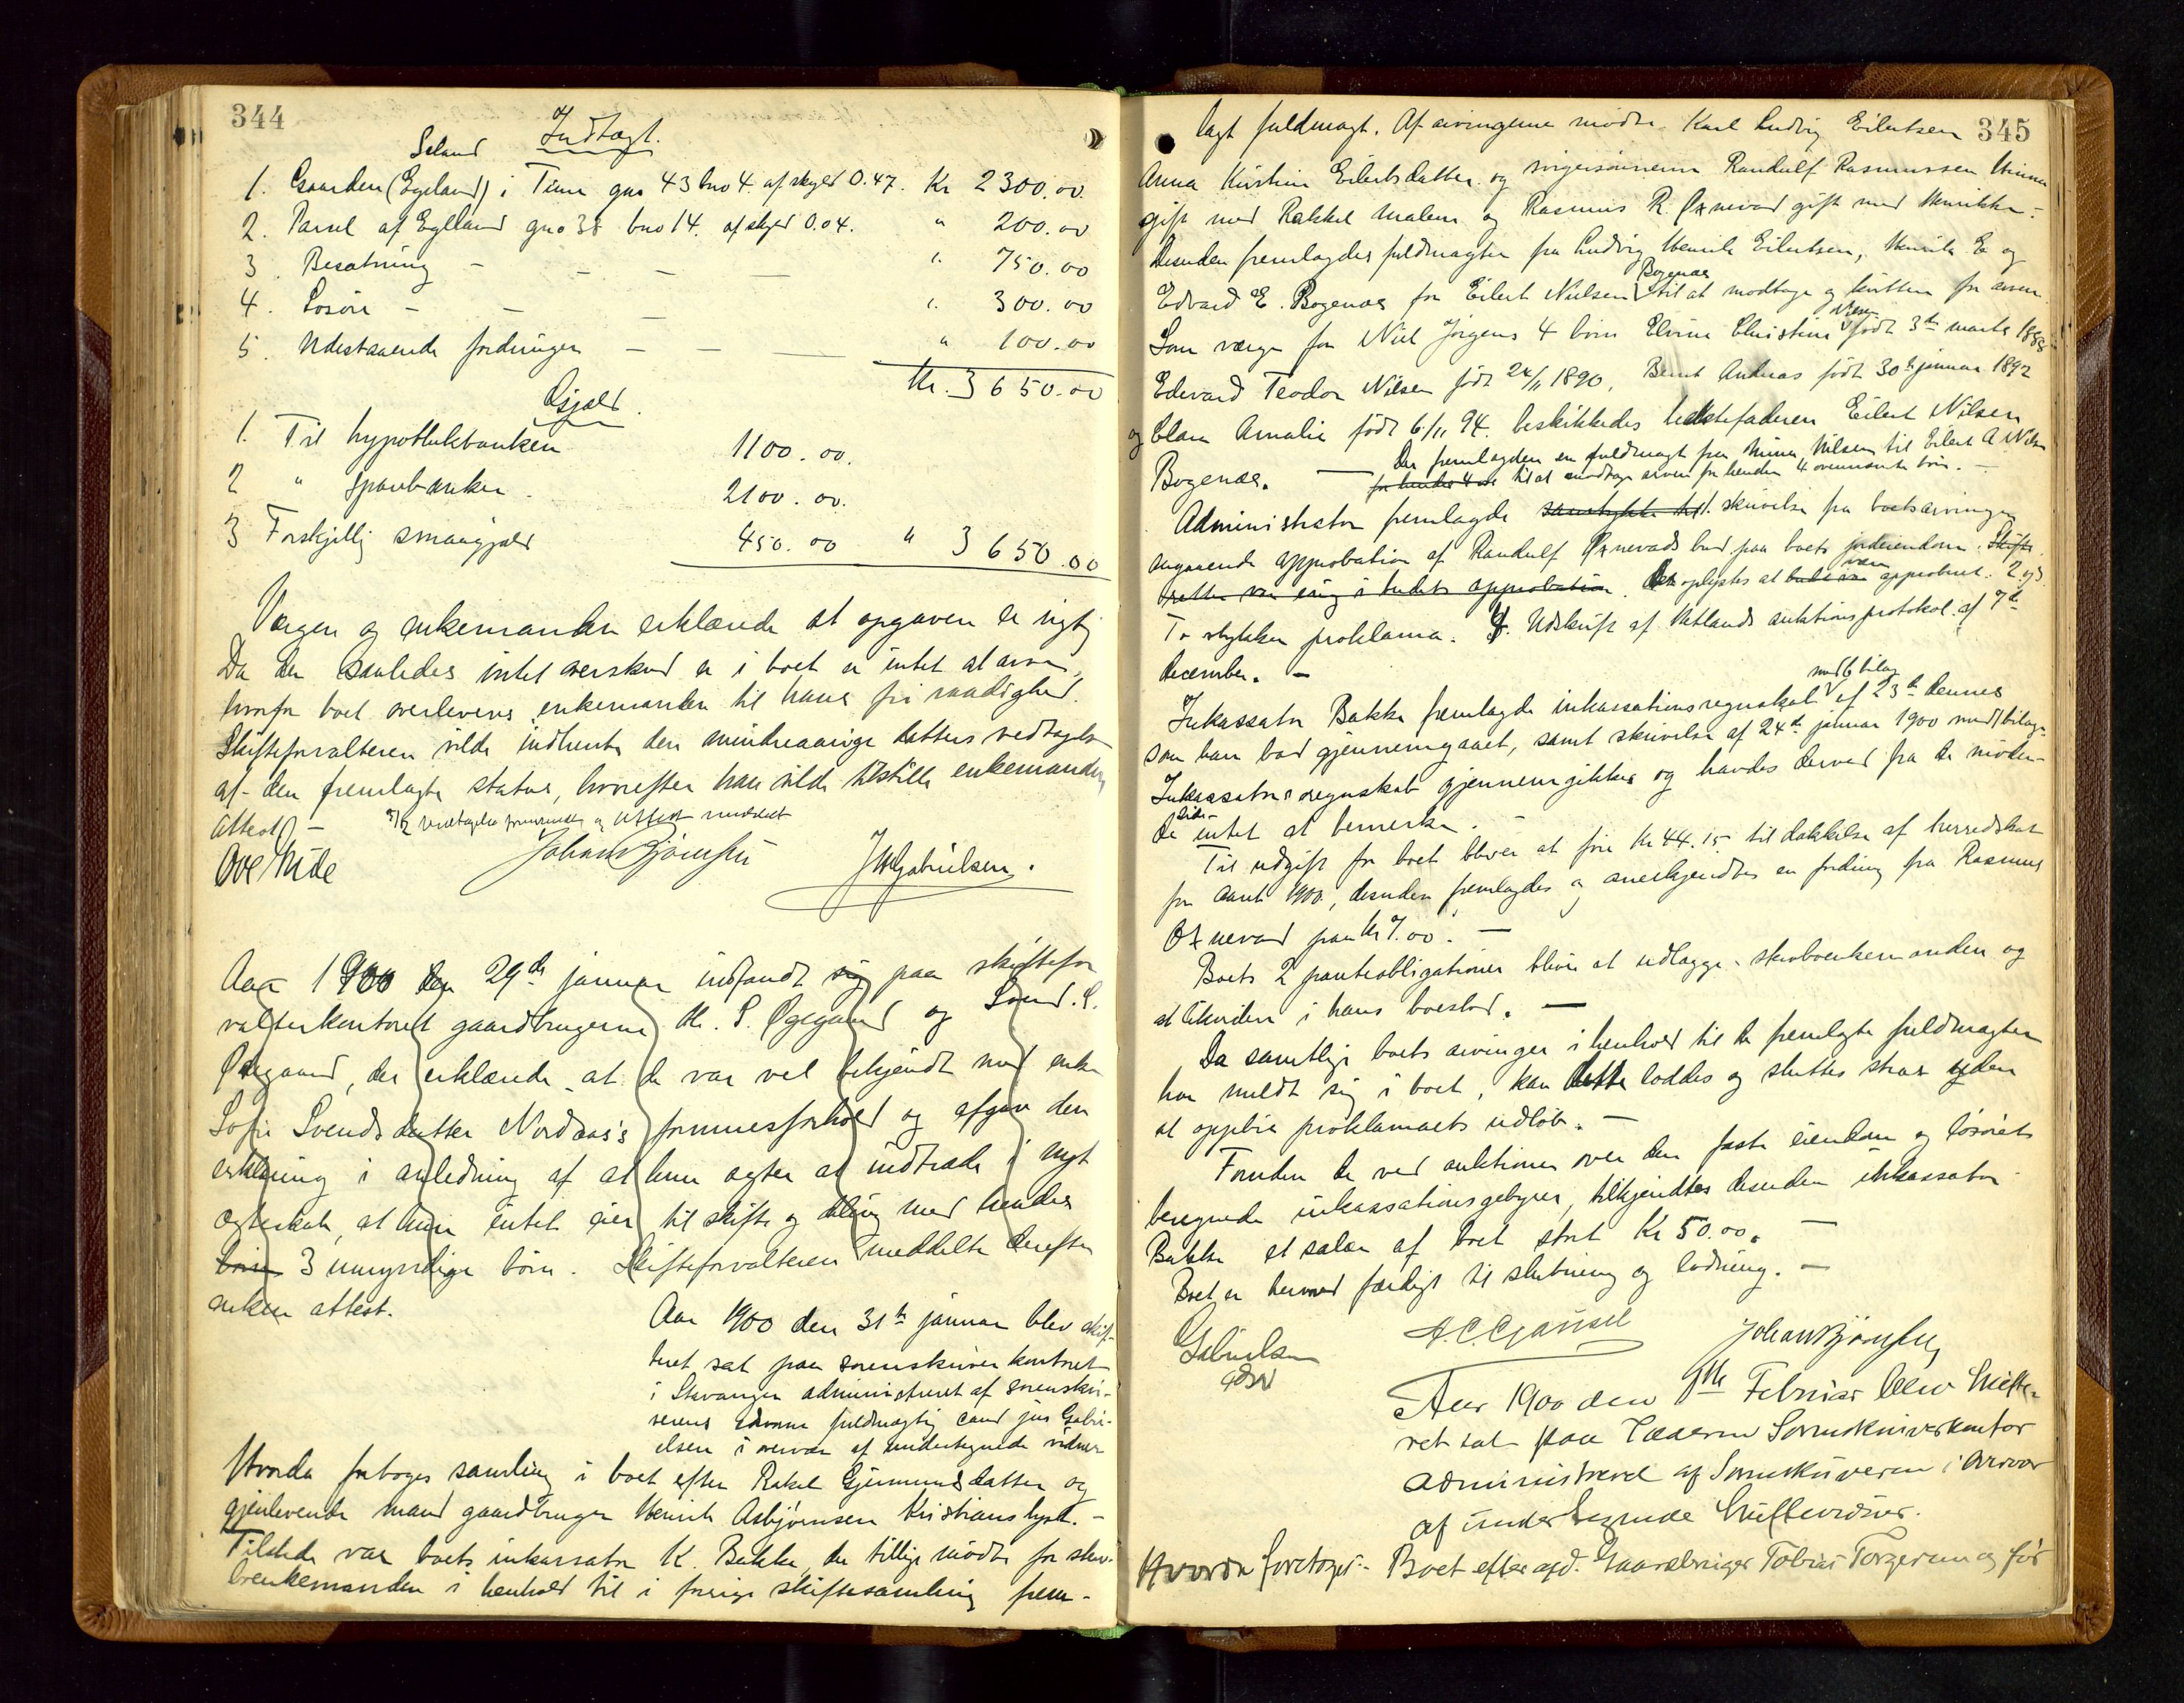 344
Indtægt.
Seland
1. Gaarden (Egeland) i Time gno 43 bno 4. af skyld 0.47. Kr 2300.00.
2. Parsel af Eglland gno 38 bno 14. af skyld 0.04. " 200.00
3. Besætning - - - — " 750.00
4. Løsøre - - — " 300.00
5. Udestaaende fordringer — — — " 100.00
Kr. 3650.00
Gjæld.
1. Til hypothekbanken 1100.00.
2 " sparebanken. 2100.00.
3 Forskjellig smaagjæld 450.00 " 3650.00
Værgen og enkemanden erklærede at opgaven er rigtig
Da der saaledes intet overskud er i boet er intet at arve,
hvorfor boet overleveres enkemanden til hans fri raadighed.
Skifteforvalteren vilde indhente den mindreaarige datters vedtagelse
af den fremlagte status, hvorefter han vilde tilstille enkemanden
attest. - vedtagelse fremsendt og attest meddelt
Ove Nide Johan Bjørnsen J M Gabrielsen.
Aar 1900 den 29de januar indfandt sig paa skiftefor
valterkontoret gaardbrugerne M. S. Øgegaard og Svend. S.
Øgegaard, der erklærede at de var vel bekjendt med enke
Sofie Svendsdatter Nordaas's formuesforhold og afgav den
erklæring i anledning af at hun agter at indtræde i nyt
ægteskab, at hun intet eier til skifte og deling med hendes
børn 3 umyndige børn. Skifteforvalteren meddelte derefter
enken attest.
Aar 1900 den 31te januar blev skif-
teret sat paa sorenskriverkontoret
i Stavanger administreret af sorenskri-
verens edsvorne fuldmægtig cand jur Gabri-
elsen i overvær af undertegnede vidner
Hvorda foretoges samling i boet efter Rakel Gjermundsdatter og
gjenlevende mand gaardbruger Henrik Asbjørnsen Kristianslyst. -
Tilstede var boets inkassator K. Bakke, der tillige mødte for skus-
brenkemanden i henhold til i forrige skiftesamling frem-
345
lagt fuldmagt. Af arvingerne mødte Karl Ludvig Eilertsen
Anna Kirstine Eilertsdatter og svigersønnerne Randulf Rasmussen Hinna
gift med Rakkel Malene og Rasmus R. Øxnevad gift med Henrikke.-
Desuden fremlagdes fuldmagter fra Ludvig Henrik Eilertsen, Henrik E og
Bogenæs
Edvard E. Bogenæs for Eilert Nielsen til at modtage og kvittere for arven.
Nilsen
Som værge for Niel Jørgens 4 børn Elvine Christine født 3de marts 1888
Edevard Teodor Nilsen født 24/11 1890, Bernt Andreas født 30te januar 1892
og Clara Amalie født 6/11 94. beskikkedes bedstefaderen Eilert Nilsen
Bogenæs. — Der fremlagdes en fuldmagt fra Mina Nilsen til Eilert A Nilsen
for hendes 4 til at modtage arven for hendes 4 ovennævnte børn. -
Administrator fremlagde samtykke til skrivelse fra boets arvinger
angaaende approbation af Randulf Øxnevads bud paa boets jordeiendom. Skifte
være
retten var enig i budets approbation. Det oplystes at budet var approberet. 2 og 3
To stykker proklama. 4. Udskrift af Hetlands auktionsprotokol af 7de
december. -
med 6 bilag
Inkassator Bakke fremlagde inkassationsregnskab af 23de dennes
som han bad gjennemgaaet, samt skrivelse af 24de januar 1900 med 1 bilag.
Inkassators regnskab gjennemgikkes og havdes derved fra de møden-
des side
intet at bemerke. -
Til udgift for boet bliver at føre Kr 44.15 til dækkelse af herredskat
for aaret 1900, desuden fremlagdes og anerkjendtes en fordring fra Rasmus
Øxnevad paa Kr 7.00. -
Boets 2 panteobligationer bliver at udlægge skusbrenkemanden og
at likvidere i hans boeslod. -
Da samtlige boets arvinger i henhold til de fremlagte fuldmagter
har meldt sig i boet, kan dette loddes og sluttes strax uden
at oppebie proklamaets udløb. -
Foruden de ved auktionen over den faste eiendom og løsøret
beregnede inkassationsgebyrer, tilkjendtes desuden inkassator
Bakke et salær af boet stort Kr 50.00. -
Boet er hermed færdigt til slutning og lodning. -
Gabrielsen A. C. Gjansel Johan Bjørnsen
Aar 1900 den 9de Februar blev Skifte-
ret sat paa Jæderens Sorenskriverkontor
administreret af Sorenskriveren i overvær
af undertegnede Skiftevidner.
Hvorda foretoges:- Boet efter afd. Gaardbruger Tobias Torgersen og før